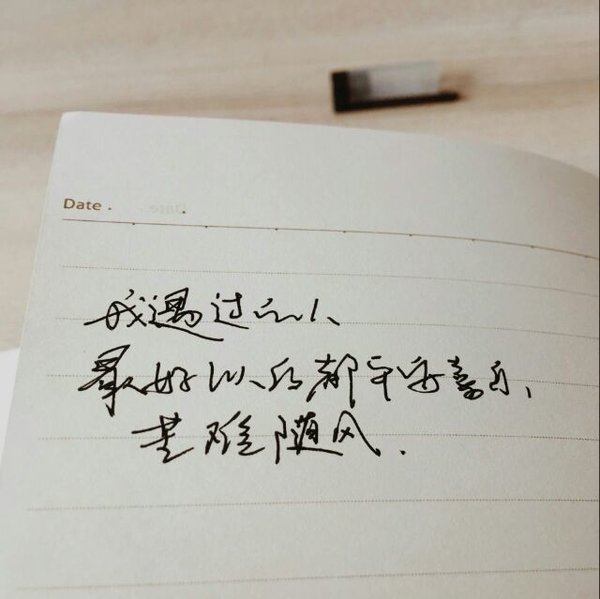 Date
我遇过的人、
最好以后都平安喜乐，
苦难随风.